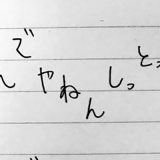 んでやねんしっと